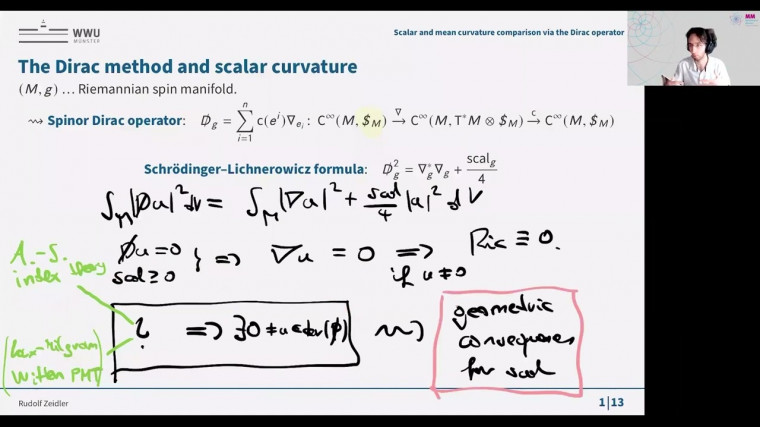 WWU
MÜNSTER
Scalar and mean curvature comparison via the Dirac operator
MM
The Dirac method and scalar curvature
(M, g) … Riemannian spin manifold.
⇝ Spinor Dirac operator: D̸_g = ∑_{i=1}^{n} c(e^i)∇_{e_i} : C^∞(M, $_M) →^∇ C^∞(M, T*M ⊗ $_M) →^c C^∞(M, $_M)
Schrödinger–Lichnerowicz formula: D̸_g^2 = ∇_g^*∇_g + scal_g/4
∫_M |D̸u|^2 dV = ∫_M |∇u|^2 + scal/4 |u|^2 dV
D̸u = 0
scal ≥ 0 } ⇒ ∇u = 0 ⇒ Ric ≡ 0.
if u ≠ 0
A.-S.
index theory
? ⇒ ∃ 0 ≠ u ∈ ker(D̸) ⇝
geometric
consequences
for scal
(Lax-Milgram
Witten PMT)
Rudolf Zeidler
1|13